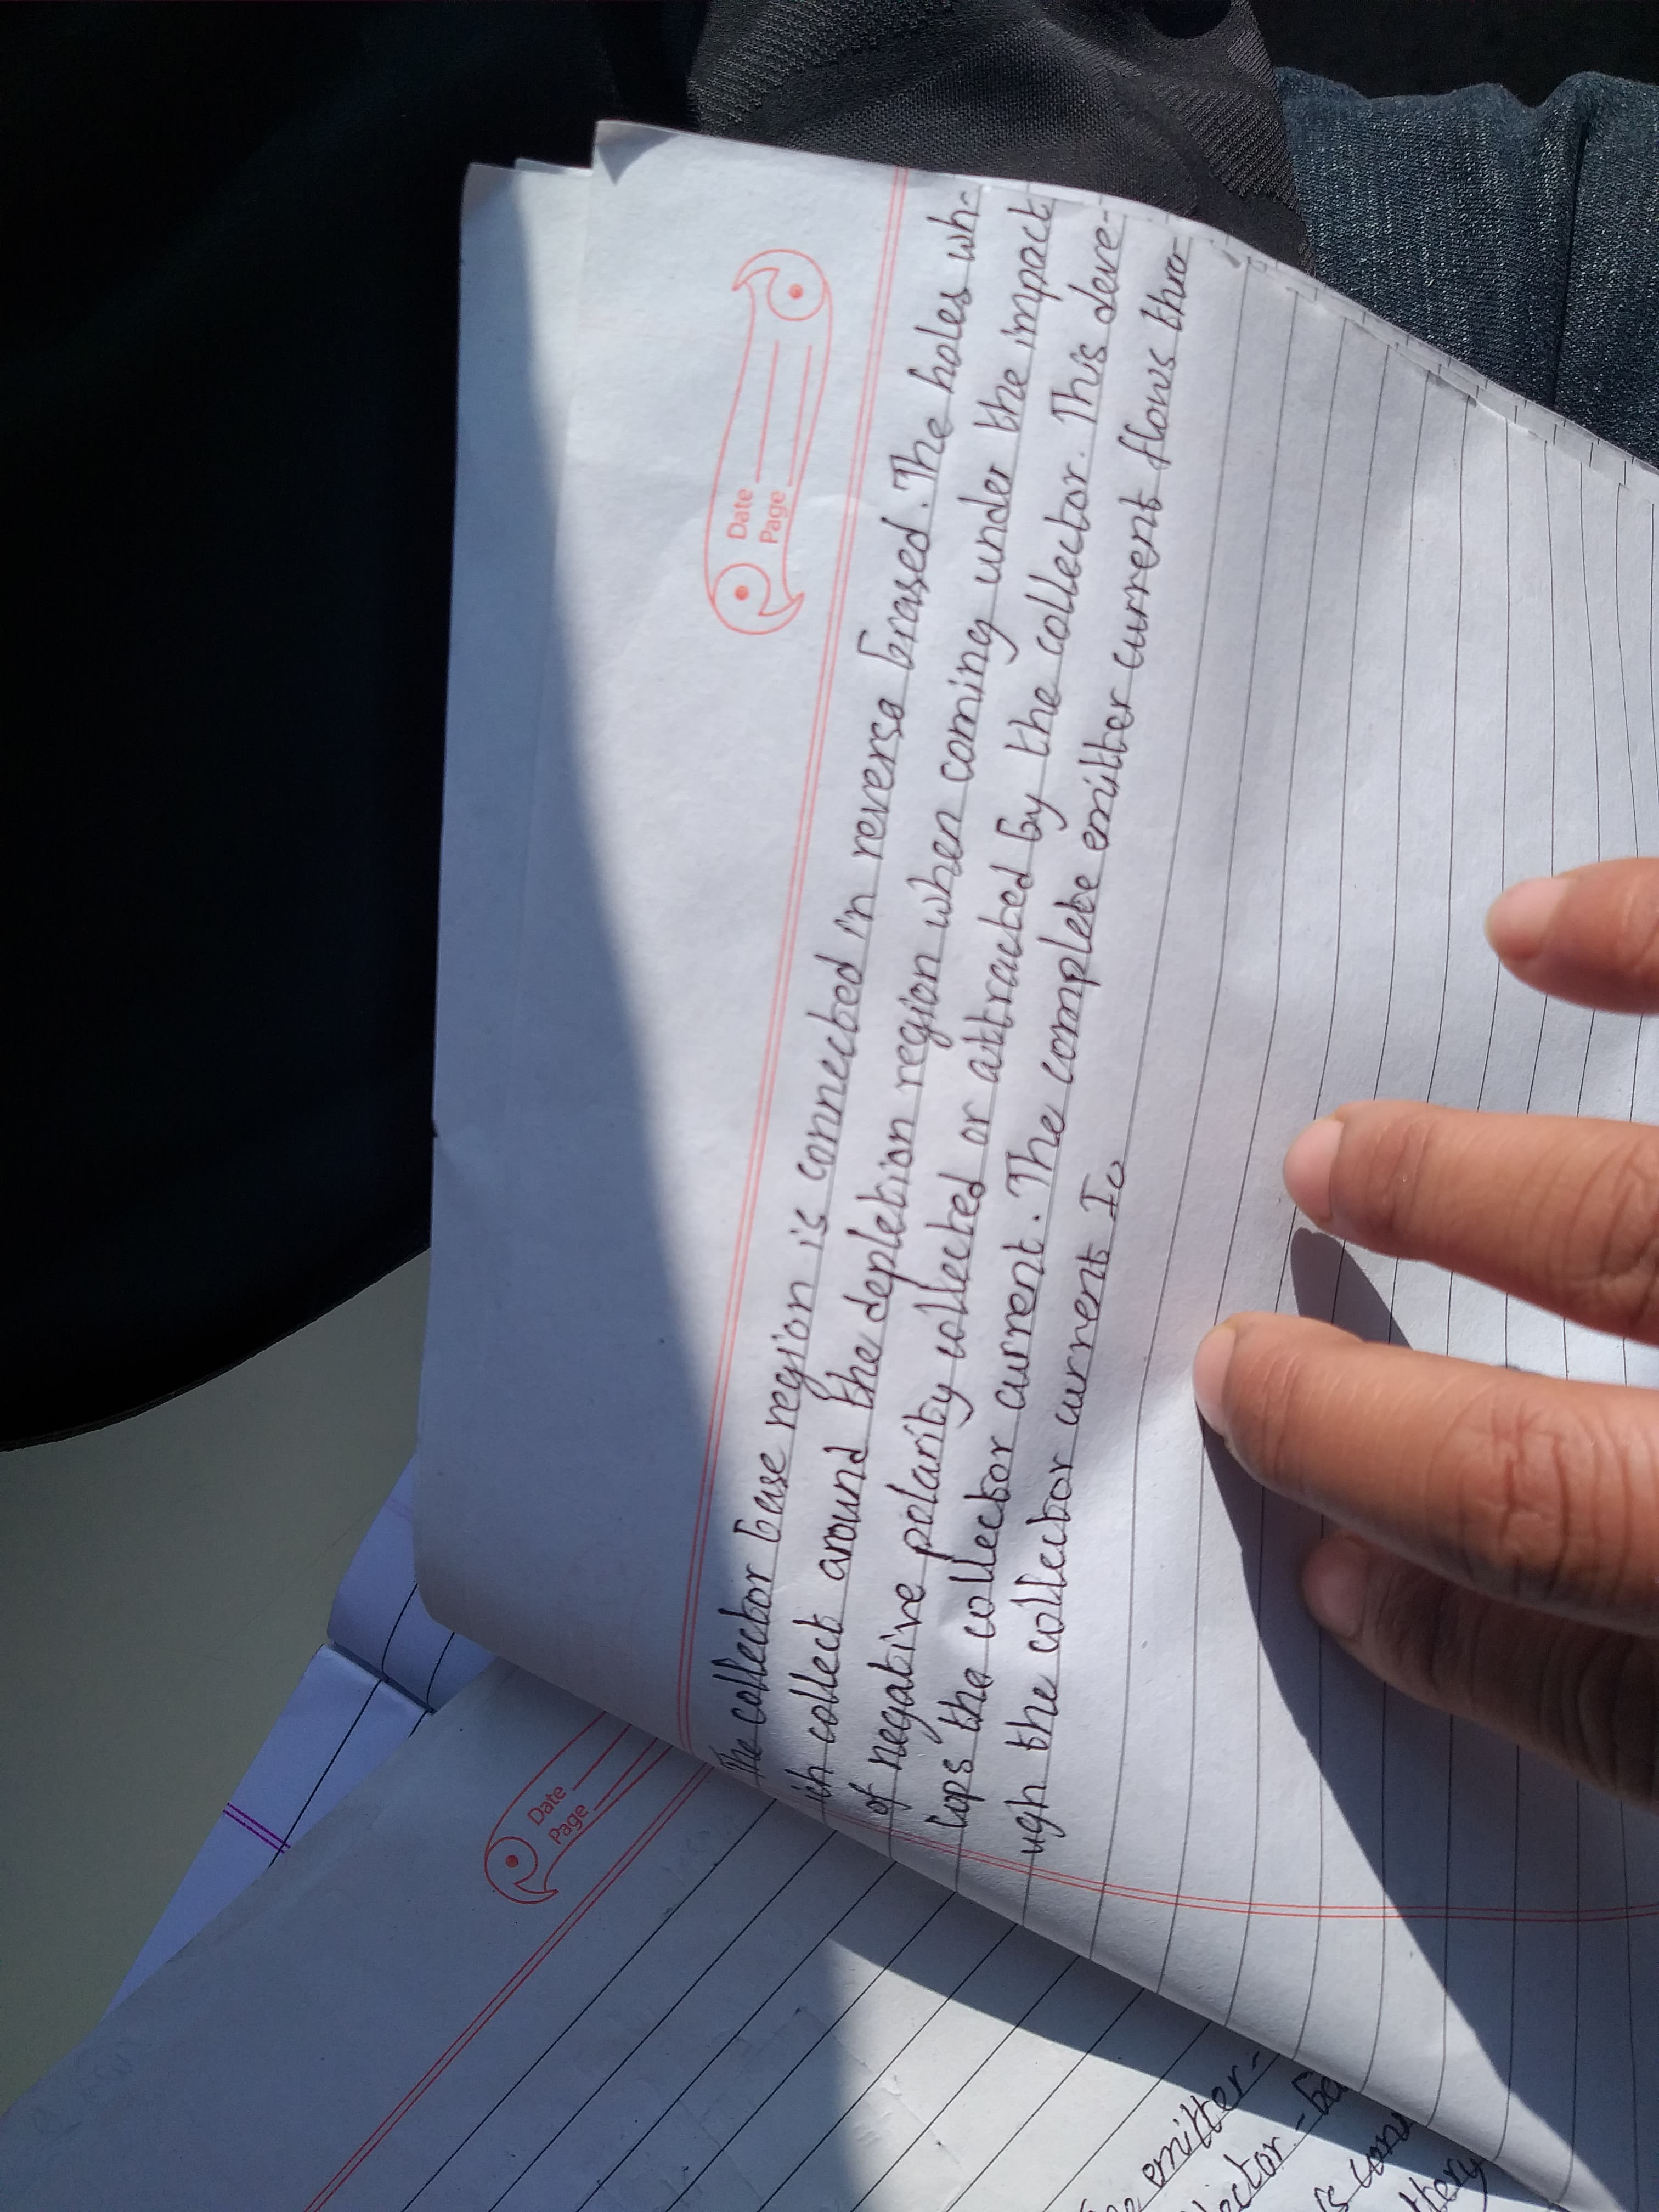 Date
Page
Date
Page
The collector base region is connected in reverse biased. The holes wh-
ich collect around the depletion region when coming under the impact
of negative polarity collected or attracted by the collector. This deve-
lops the collector current. The complete emitter current flows thro-
ugh the collector current Ic
emitter-
is